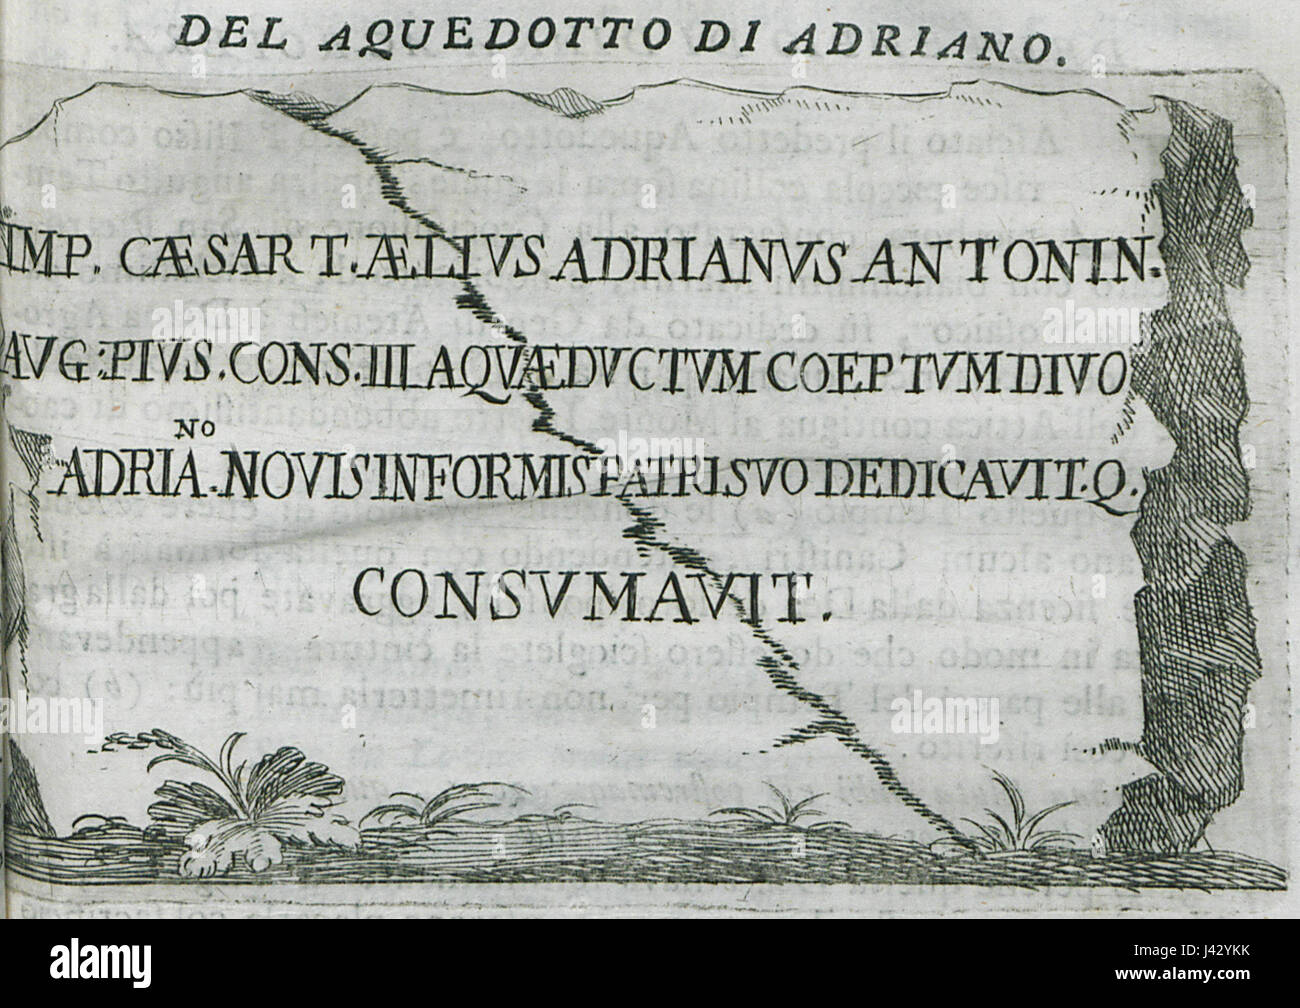 DEL AQUEDOTTO DI ADRIANO.
IMP. CÆSAR T. ÆLIVS ADRIANVS ANTONIN.
AVG: PIVS. CONS. III AQVÆDVCTVM COEPTVM DIVO
NO
ADRIA. NOVIS IN FORMIS PATRI SVO DEDICAVIT. Q.
CONSVMAVIT.
alamy
Image ID: J42YKK
www.alamy.com